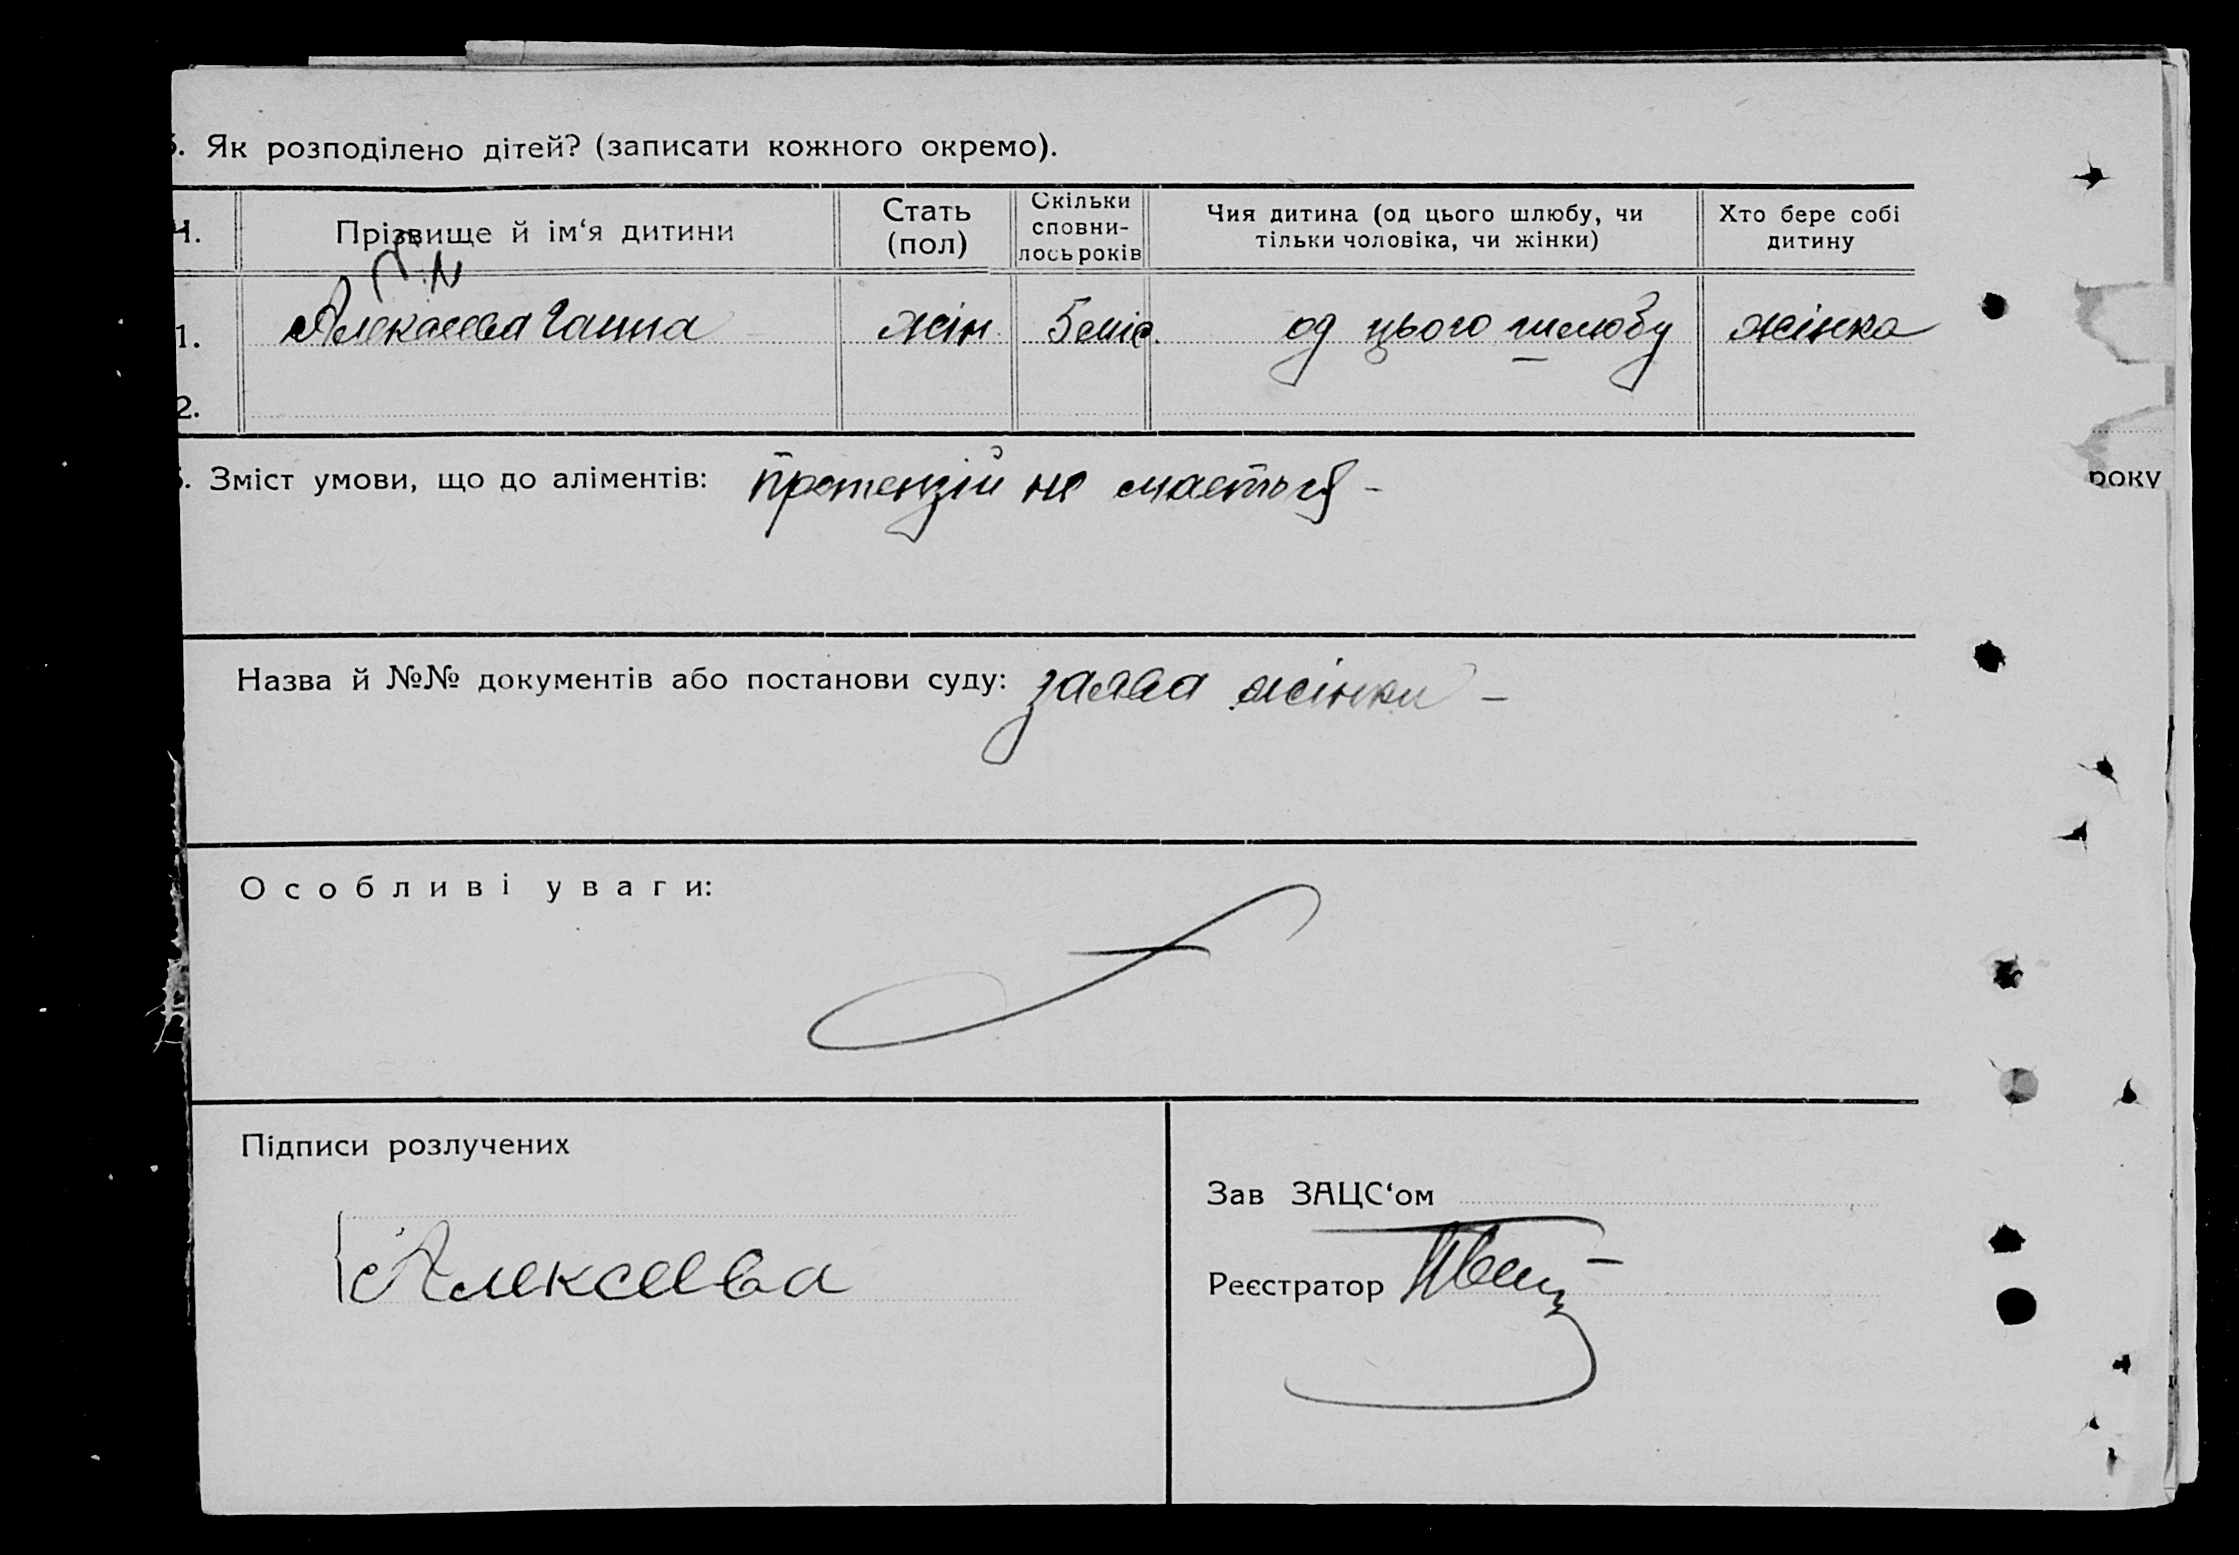 5. Як розподілено дітей? (записати кожного окремо).
Ч. Прізвище й ім‘я дитини Стать (пол) Скільки сповни-лось років Чия дитина (од цього шлюбу, чи тільки чоловіка, чи жінки) Хто бере собі дитину
1. Алексеева Ганна жін 5 міс. од цього шлюбу жінка
2.
Зміст умови, що до аліментів: претензій не мається -
року
Назва й №№ документів або постанови суду: заява жінки -
Особливі уваги:
Підписи розлучених
Зав ЗАЦС‘ом
Алексеева
Реєстратор